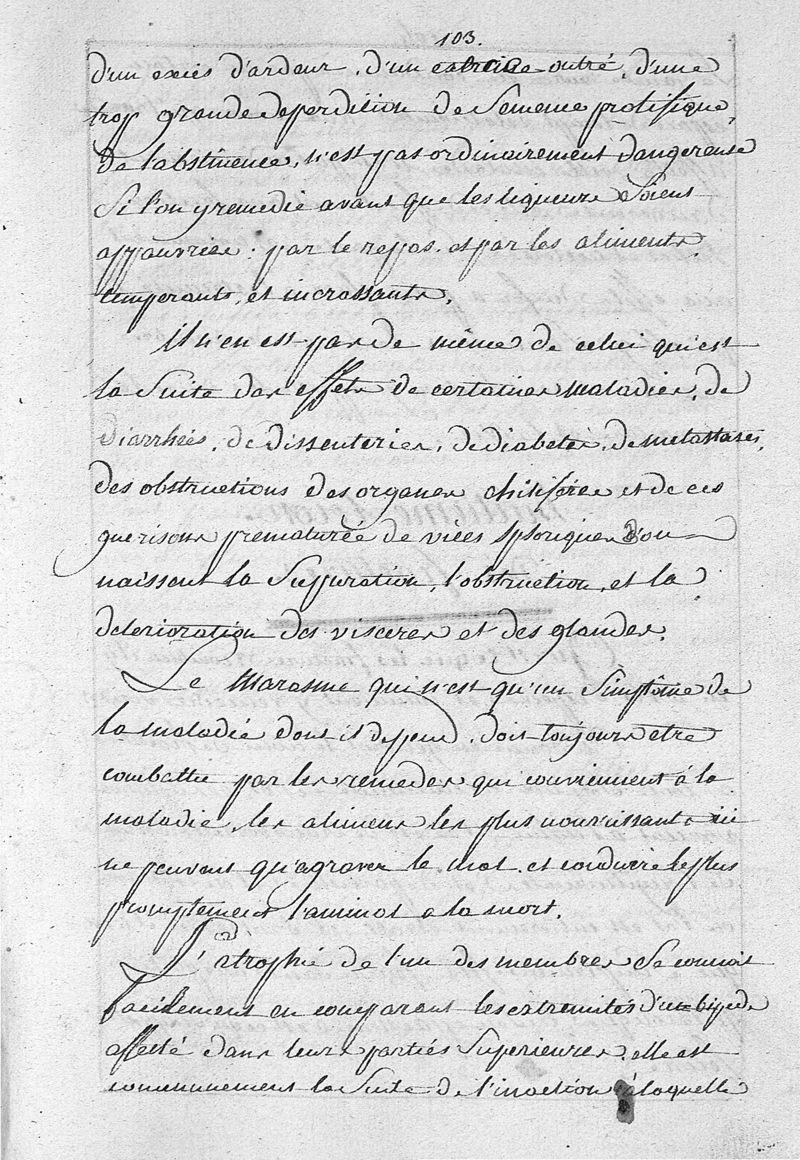 103.
d'un excès d'ardeur, d'un exercice outré, d'une
trop grande deperdition de Semence prolifique,
de l'abstinence, n'est pas ordinairement dangereuse
Si l'on y remedie avant que les liqueurs Soient
appauvries: par le repos et par les aliments
temperants, et incrassants.
Il n'en est pas de même de celui qui est
la Suite des effets de certaines maladies, de
diarrhées, de dissenteries, de diabetes, de metastases,
des obstructions des organes chilifères et de ces
guerisons prematurée de vices psoriques d'ou
naissent la Supuration, l'obstruction, et la
deterioration des visceres et des glandes.
Le Marasme qui n'est qu'un Simptôme de
la maladie dont il depend, doit toujours etre
combattu par les remedes qui conviennent à la
maladie, les alimens les plus nourrissants ici
ne peuvent qu'agraver le mal et conduire le plus
promptement l'animal a la mort.
L'atrophie de l'un des membres Se connoit
facilement en comparant les extremités d'un bipede
affecté dans leurs parties Superieures, elle est
communement la Suite de l'inaction à laquelle